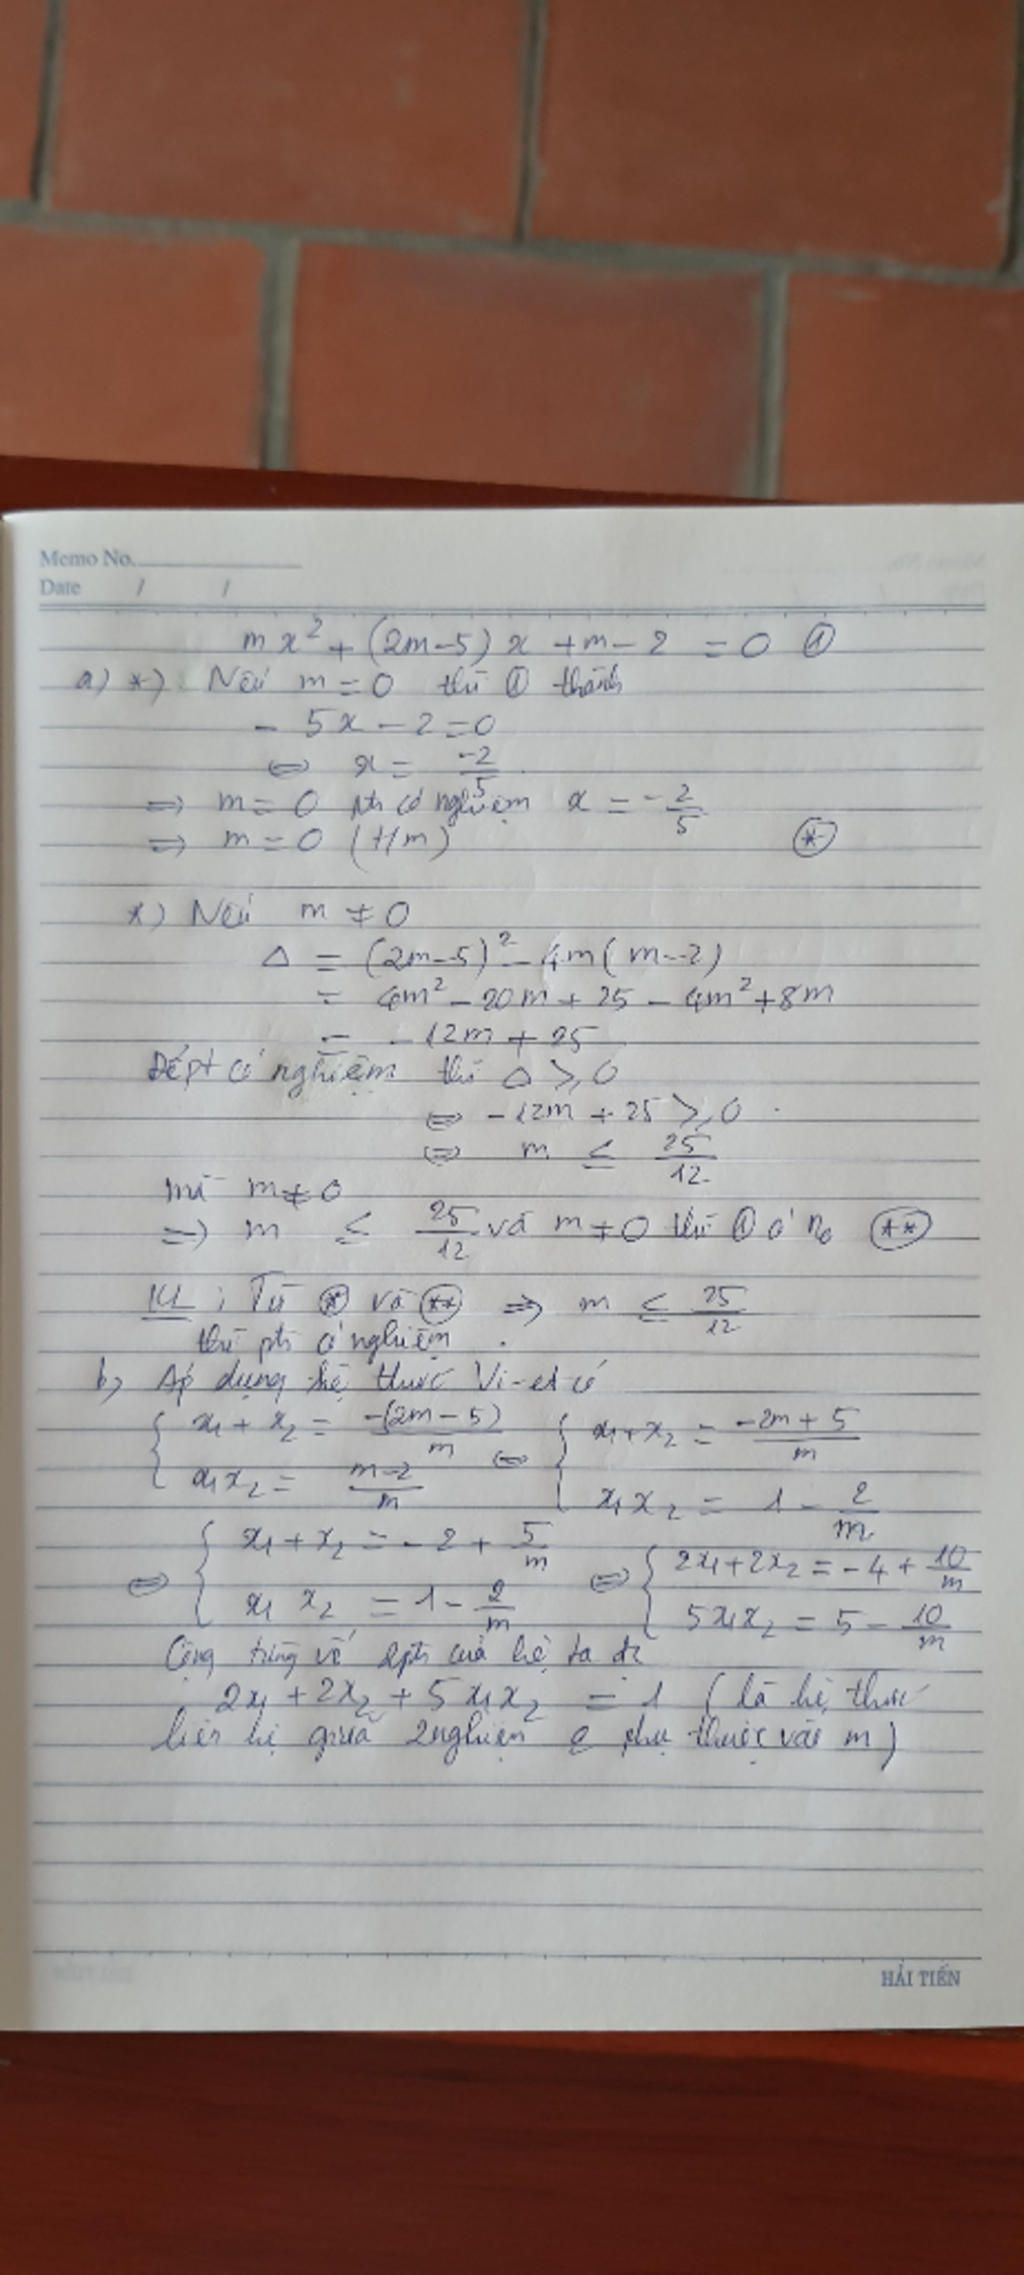 Memo No.
Date / /
mx² + (2m-5)x + m-2 = 0 ①
a) *) Nếu m = 0 thì ① thành
- 5x - 2 = 0
⇔ x = -2/5
⇒ m = 0 pt có nghiệm x = -2/5
⇒ m = 0 (t/m) (*)
*) Nếu m ≠ 0
Δ = (2m-5)² - 4m(m-2)
= 4m² - 20m + 25 - 4m² + 8m
= -12m + 25
Để pt có nghiệm thì Δ ≥ 0
⇔ -12m + 25 ≥ 0
⇔ m ≤ 25/12
mà m ≠ 0
⇒ m ≤ 25/12 và m ≠ 0 thì ① có no (**)
KL : Từ (*) và (**) ⇒ m ≤ 25/12
thì pt có nghiệm .
b) Áp dụng hệ thức Vi-et có
{ x₁ + x₂ = -(2m-5)/m ⇔ { x₁+x₂ = -2m+5/m
x₁x₂ = m-2/m x₁x₂ = 1 - 2/m
⇔ { x₁ + x₂ = -2 + 5/m ⇔ { 2x₁+2x₂ = -4 + 10/m
x₁ x₂ = 1 - 2/m 5x₁x₂ = 5 - 10/m
Cộng từng vế 2pt của hệ ta đc
2x₁ + 2x₂ + 5x₁x₂ = 1 (là hệ thức
liên hệ giữa 2 nghiệm phụ thuộc vào m)
HẢI TIẾN